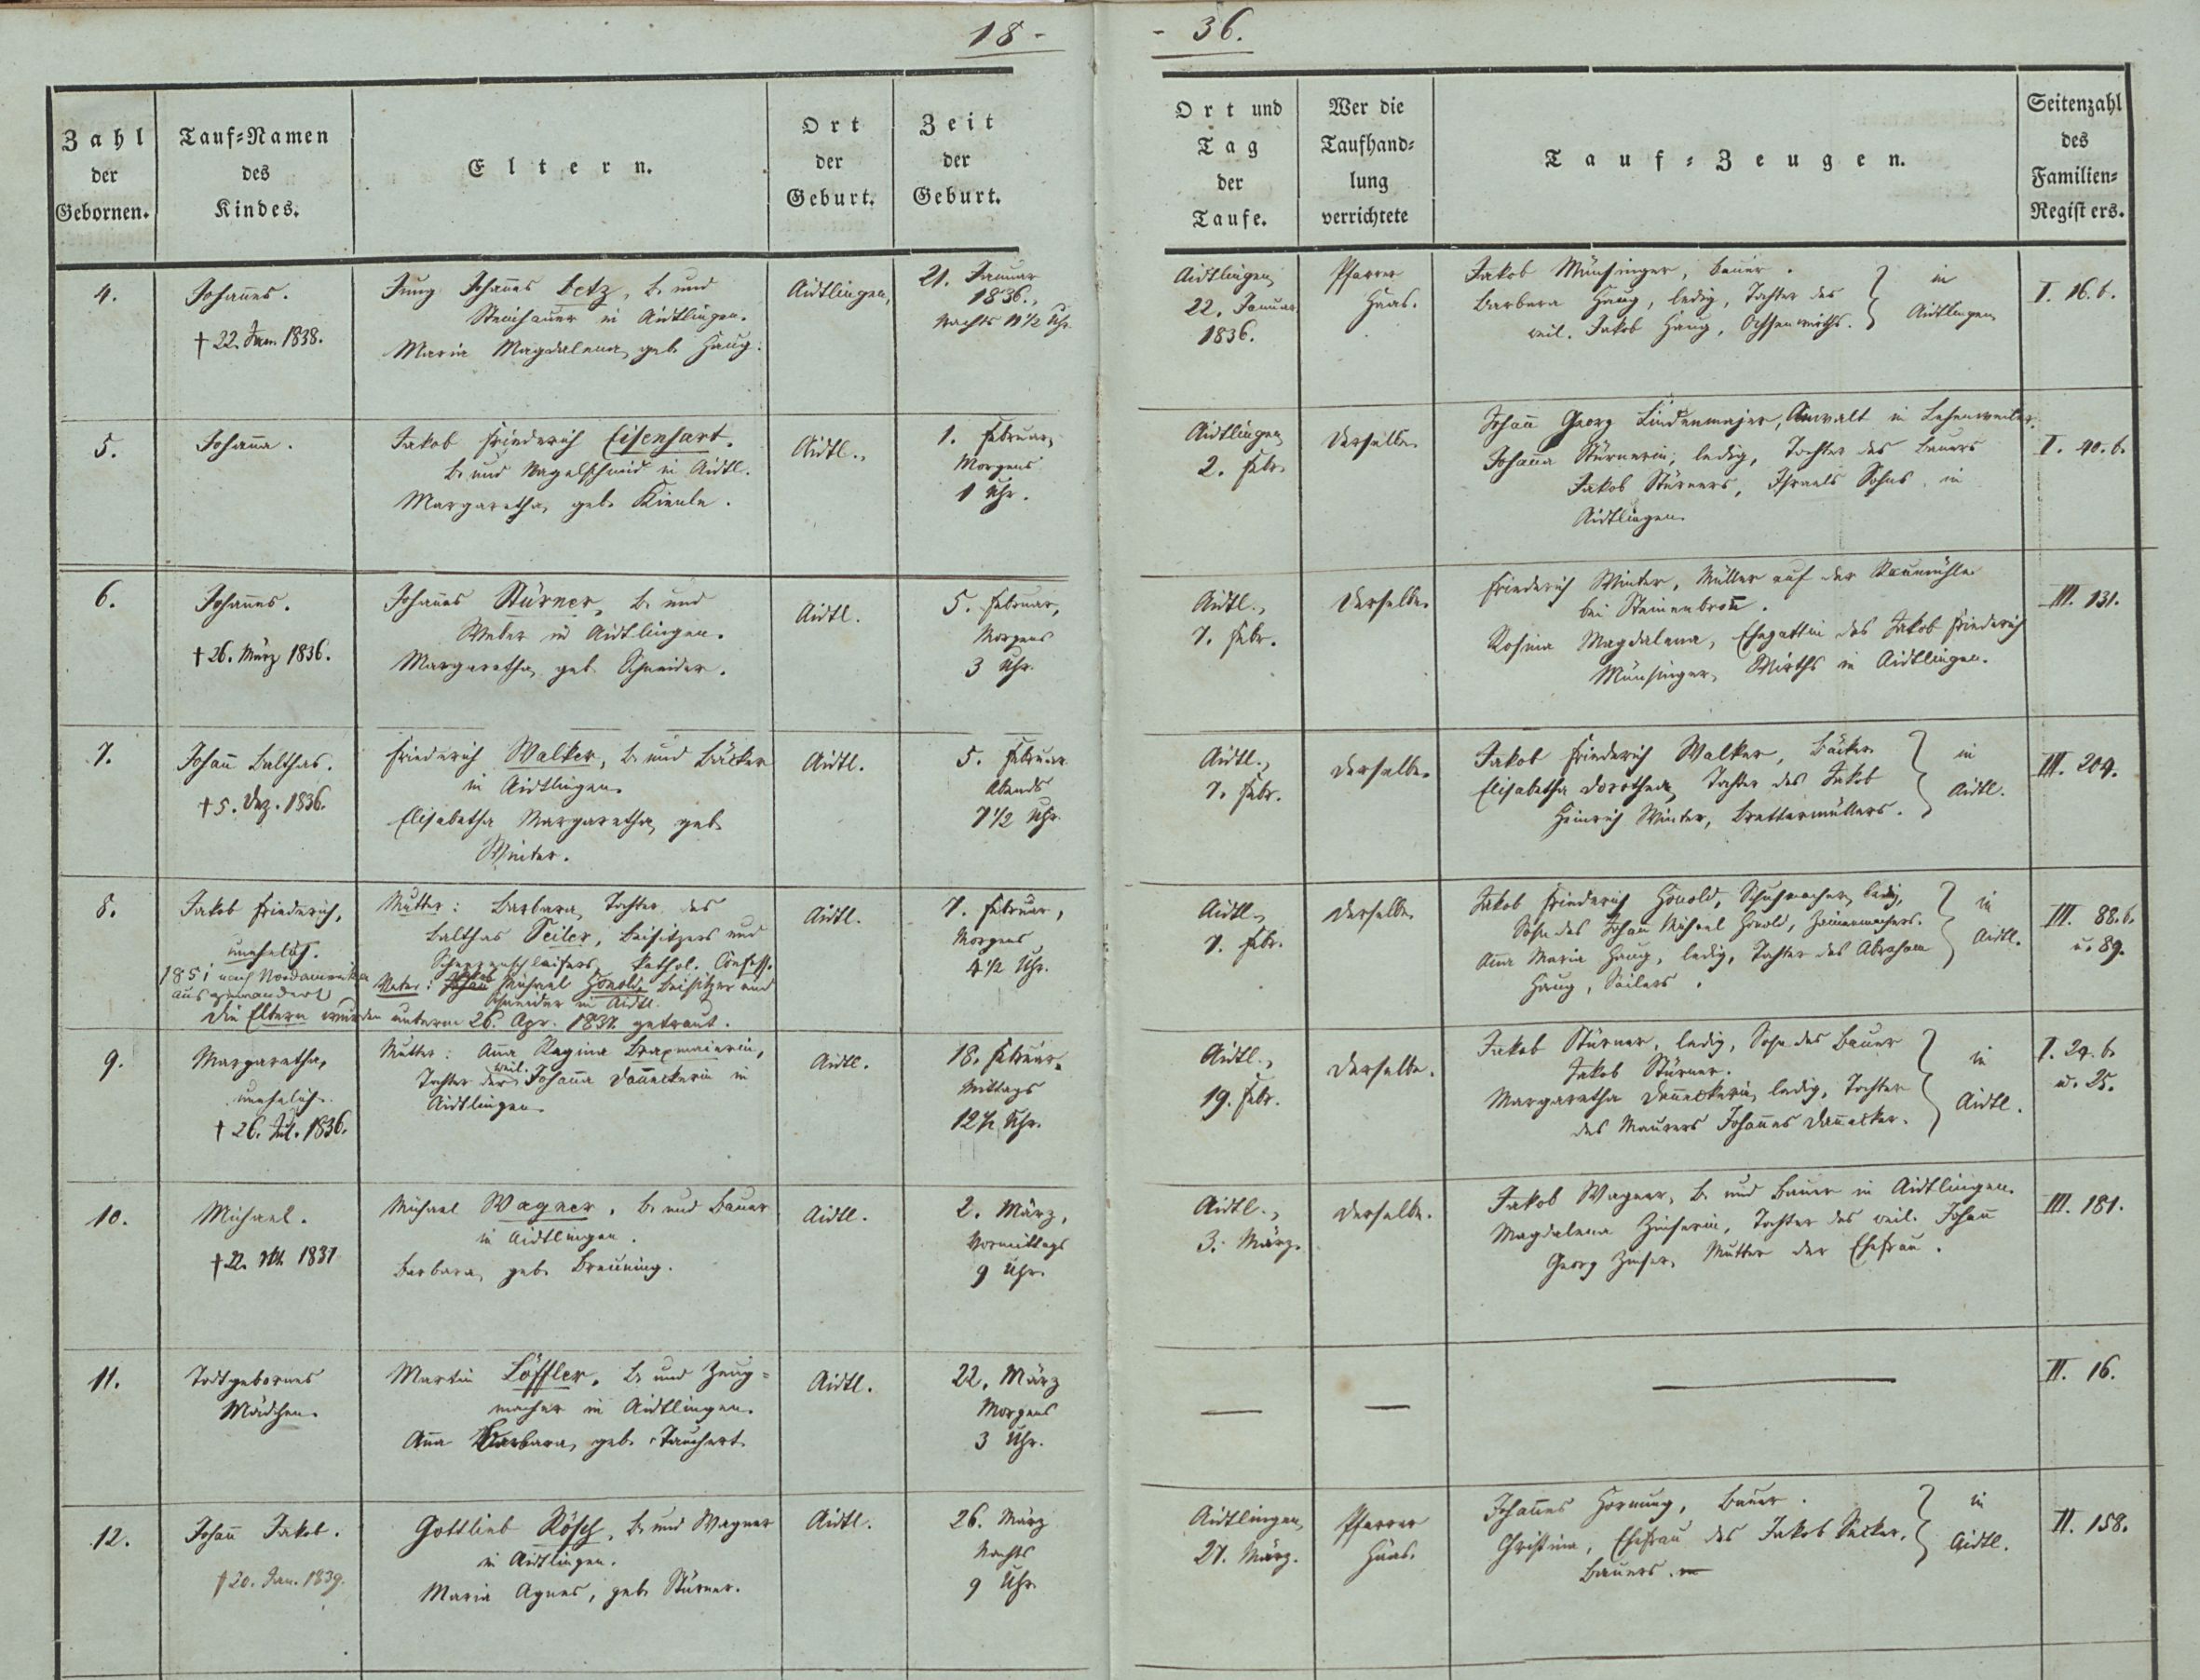 18 -
- 36.
Zahl
der
Gebornen.
Tauf-Namen
des
Kindes.
Eltern.
Ort
der
Geburt.
Zeit
der
Geburt.
Ort und
Tag
der
Taufe.
Wer die
Taufhand-
lung
verrichtete
Tauf-Zeugen.
Seitenzahl
des
Familien-
Registers.
4.
Johañes.
† 22. Jan. 1838.
Jung Johañes Betz, B. und
Steinhauer in Aidtlingen.
Maria Magdalena, geb. Haug.
Aidtlingen,
21. Januar
1836.,
Nachts 11 1/2 Uhr.
Aidtlingen,
22. Januar
1836.
Pfarrer
Haas.
Jakob Münsinger, Bauer.
Barbara Haug, ledig, Tochter des
weil. Jakob Haug, Ochsenwirths.
in
Aidtlingen
I. 16. b.
5.
Johaña.
Jakob Friederich Eisenhart.
B. und Nagelschmid in Aidtl.
Margaretha, geb. Kienle.
Aidtl.,
1. Februar,
Morgens
1 Uhr.
Aidtlingen
2. Febr.
Derselbe.
Johañ Georg Lindenmajer, Anwalt in Lehenweiler.
Johaña Stürnerin, ledig, Tochter des Bauers
Jakob Stürners, Israels Sohns, in
Aidtlingen.
I. 40. b.
6.
Johañes.
† 26. März 1836.
Johañes Stürner, B. und
Weber in Aidtlingen.
Margaretha, geb. Schneider.
Aidtl.
5. Februar,
Morgens
3 Uhr.
Aidtl.,
7. Febr.
Derselbe.
Friederich Winter, Müller auf der
bei Steinenbroñ.
Rosina Magdalena, Ehegattin des Jakob Friederich
Münsinger, Wirths in Aidtlingen.
III. 131.
7.
Johañ Balthas.
† 5. Dez. 1836.
Friederich Walker, B. und Bäcker
in Aidtlingen.
Elisabetha Margaretha, geb.
Winter.
Aidtl.
5. Februar
Abends
7 1/2 Uhr.
Aidtl.,
7. Febr.
Derselbe.
Jakob Friederich Walker, Bäcker
Elisabetha Dorothea, Tochter des Jakob
Heinrich Winter, Brettermüllers.
in
Aidtl.
III. 209.
8.
Jakob Friederich,
unehelich.
1851 nach Nordamerika
ausgewandert
Mutter: Barbara, Tochter des
Balthas Seiler, Beisitzers und
Scheerenschleifers, kathol. Confess.
Vater: Michael Honold, Beisitzer und
Schneider in Aidtl.
Die Eltern wurden unterm 26. Apr. 1837. getraut.
Aidtl.
7. Februar,
Morgens
4 1/2 Uhr.
Aidtl.,
7. Febr.
Derselbe.
Jakob Friederich Honold, Schuhmacher, ledig,
Sohn des Johañ Michael Honold,
Aña Maria Haug, ledig, Tochter des Abraham
Haug, Seilers.
in
Aidtl.
III. 88. b.
u. 89.
9.
Margaretha,
unehelich.
† 26. Jul. 1836.
Mutter: Aña Regina
Tochter der weil. Johaña Dañeckerin in
Aidtlingen.
Aidtl.
18. Februar,
Mittags
12 1/2 Uhr.
Aidtl.,
19. Febr.
Derselbe.
Jakob Stürner, ledig, Sohn des Bauer
Jakob Stürner.
Margaretha Dañeckerin, ledig, Tochter
des Maurers Johañes Dañecker.
in
Aidtl.
I. 24. b.
u. 25.
10.
Michael.
† 22. 1837
Michael Wagner, B. und Bauer
in Aidtlingen.
Barbara, geb. Breuning.
Aidtl.
2. März,
Vormittags
9 Uhr.
Aidtl.,
3. März.
Derselbe.
Jakob Wagner, B. und Bauer in Aidtlingen.
Magdalena Zinserin, Tochter des weil. Johañ
Georg Zinser, Mutter der Ehefrau.
III. 181.
11.
Todtgebornes
Mädchen.
Martin Löffler, B. und Zeug-
macher in Aidtlingen.
Aña Barbara, geb. Tauchert.
Aidtl.
22. März
Morgens
3 Uhr.
II. 16.
12.
Johañ Jakob.
† 20. Jan. 1839.
Gottlieb Rösch, B. und Wagner
in Aidtlingen.
Maria Agnes, geb. Stürner.
Aidtl.
26. März
Nachts
9 Uhr.
Aidtlingen,
27. März.
Pfarrer
Haas.
Johañes Hornung, Bauer.
Christina, Ehefrau des Jakob
Bauers.
in
Aidtl.
II. 158.